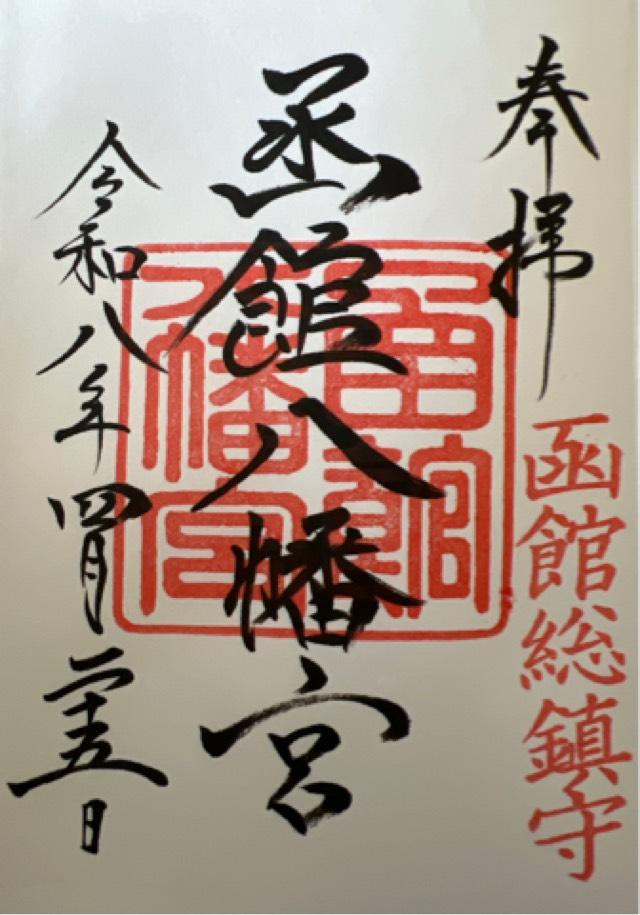 奉拝
函館総鎮守
函館八幡宮
函館八幡宮
令和八年四月二十五日